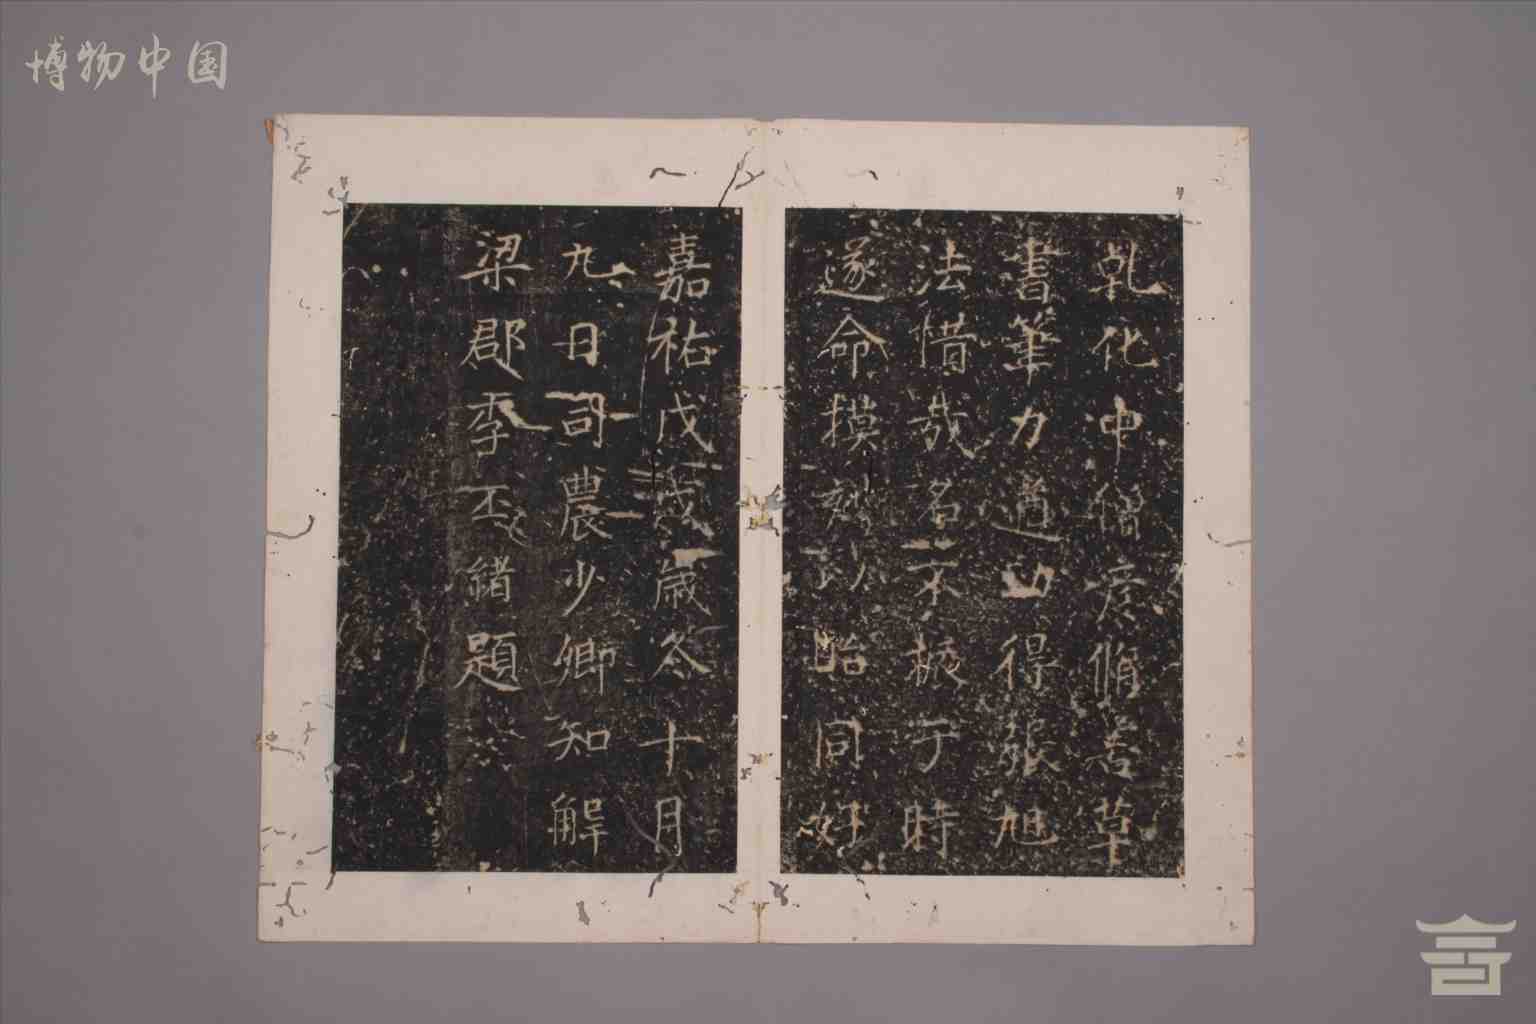 博物中国
乹化中僧彦脩善草
書筆力遒勁得張旭
法惜哉名不振于時
遂命摸刻以貽同好
嘉祐戊戌歲冬十月
九日司農少卿知解
梁郡李丕緒題